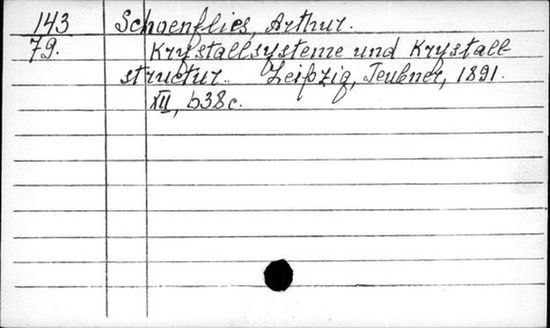 143 Schoenflies, Arthur.
79. Krystallsysteme und Krystall-
structur. Leipzig, Teubner, 1891.
XII, 638 c.